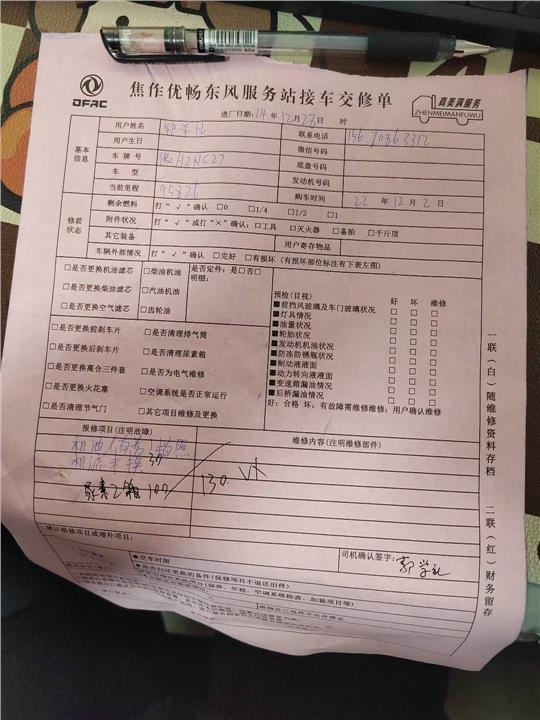 DFAC
焦作优畅东风服务站接车交修单
真美满服务
ZHENMEIMANFUWU
进厂日期:24年12月28日 时
基本信息
用户姓名 郭学礼 联系电话
用户生日 微信号码
车牌号 豫H2NC27 底盘号码
车型 发动机号码
当前里程 95826 购车时间 22年12月2日
修前状态
剩余燃料 打“√”确认 □0 □1/4 □1/2 □1
附件状况 打“√”或打“×”确认:□工具 □灭火器 □备胎 □千斤顶
其它装备 用户寄存物品
车辆外部情况 打“√”确认 □完好 □有损坏 (有损坏部位标注有下表左图)
□是否更换机油滤芯 □柴油机油 是否定件:是□否□
□是否更换柴油滤芯 □汽油机油 明细:
□是否更换空气滤芯 □齿轮油
□是否更换前刹车片 □是否清理排气筒
□是否更换后刹车片 □是否清理尿素箱
□是否更换离合三件套 □是否为电气维修
□是否更换火花塞 □空调系统是否正常运行
□是否清理节气门 □其它项目维修及更换
预检(目视) 好 坏 维修
■前挡风玻璃及车门玻璃状况 □ □ □
■灯具情况 □ □ □
■油量状况 □ □ □
■轮胎状况 □ □ □
■发动机机油状况 □ □ □
■防冻防锈瓶状况 □ □ □
■制动液液面 □ □ □
■动力转向液液面 □ □ □
■变速箱漏油情况 □ □ □
■后桥漏油情况 □ □ □
好:合格 坏:有故障需维修维修:用户确认维修
报修项目(注明故障) 维修内容(注明维修部件)
机油
机滤 30
尿素 100 130.
建议维修项目或增补项目:
司机确认签字: 郭学礼
◆交车时间
◆是否归还更换的备件(保修项目不退还旧件)
(保养、年检、空调系统检查、加装项目等)
一联(白)随维修资料存档
二联(红)财务留存